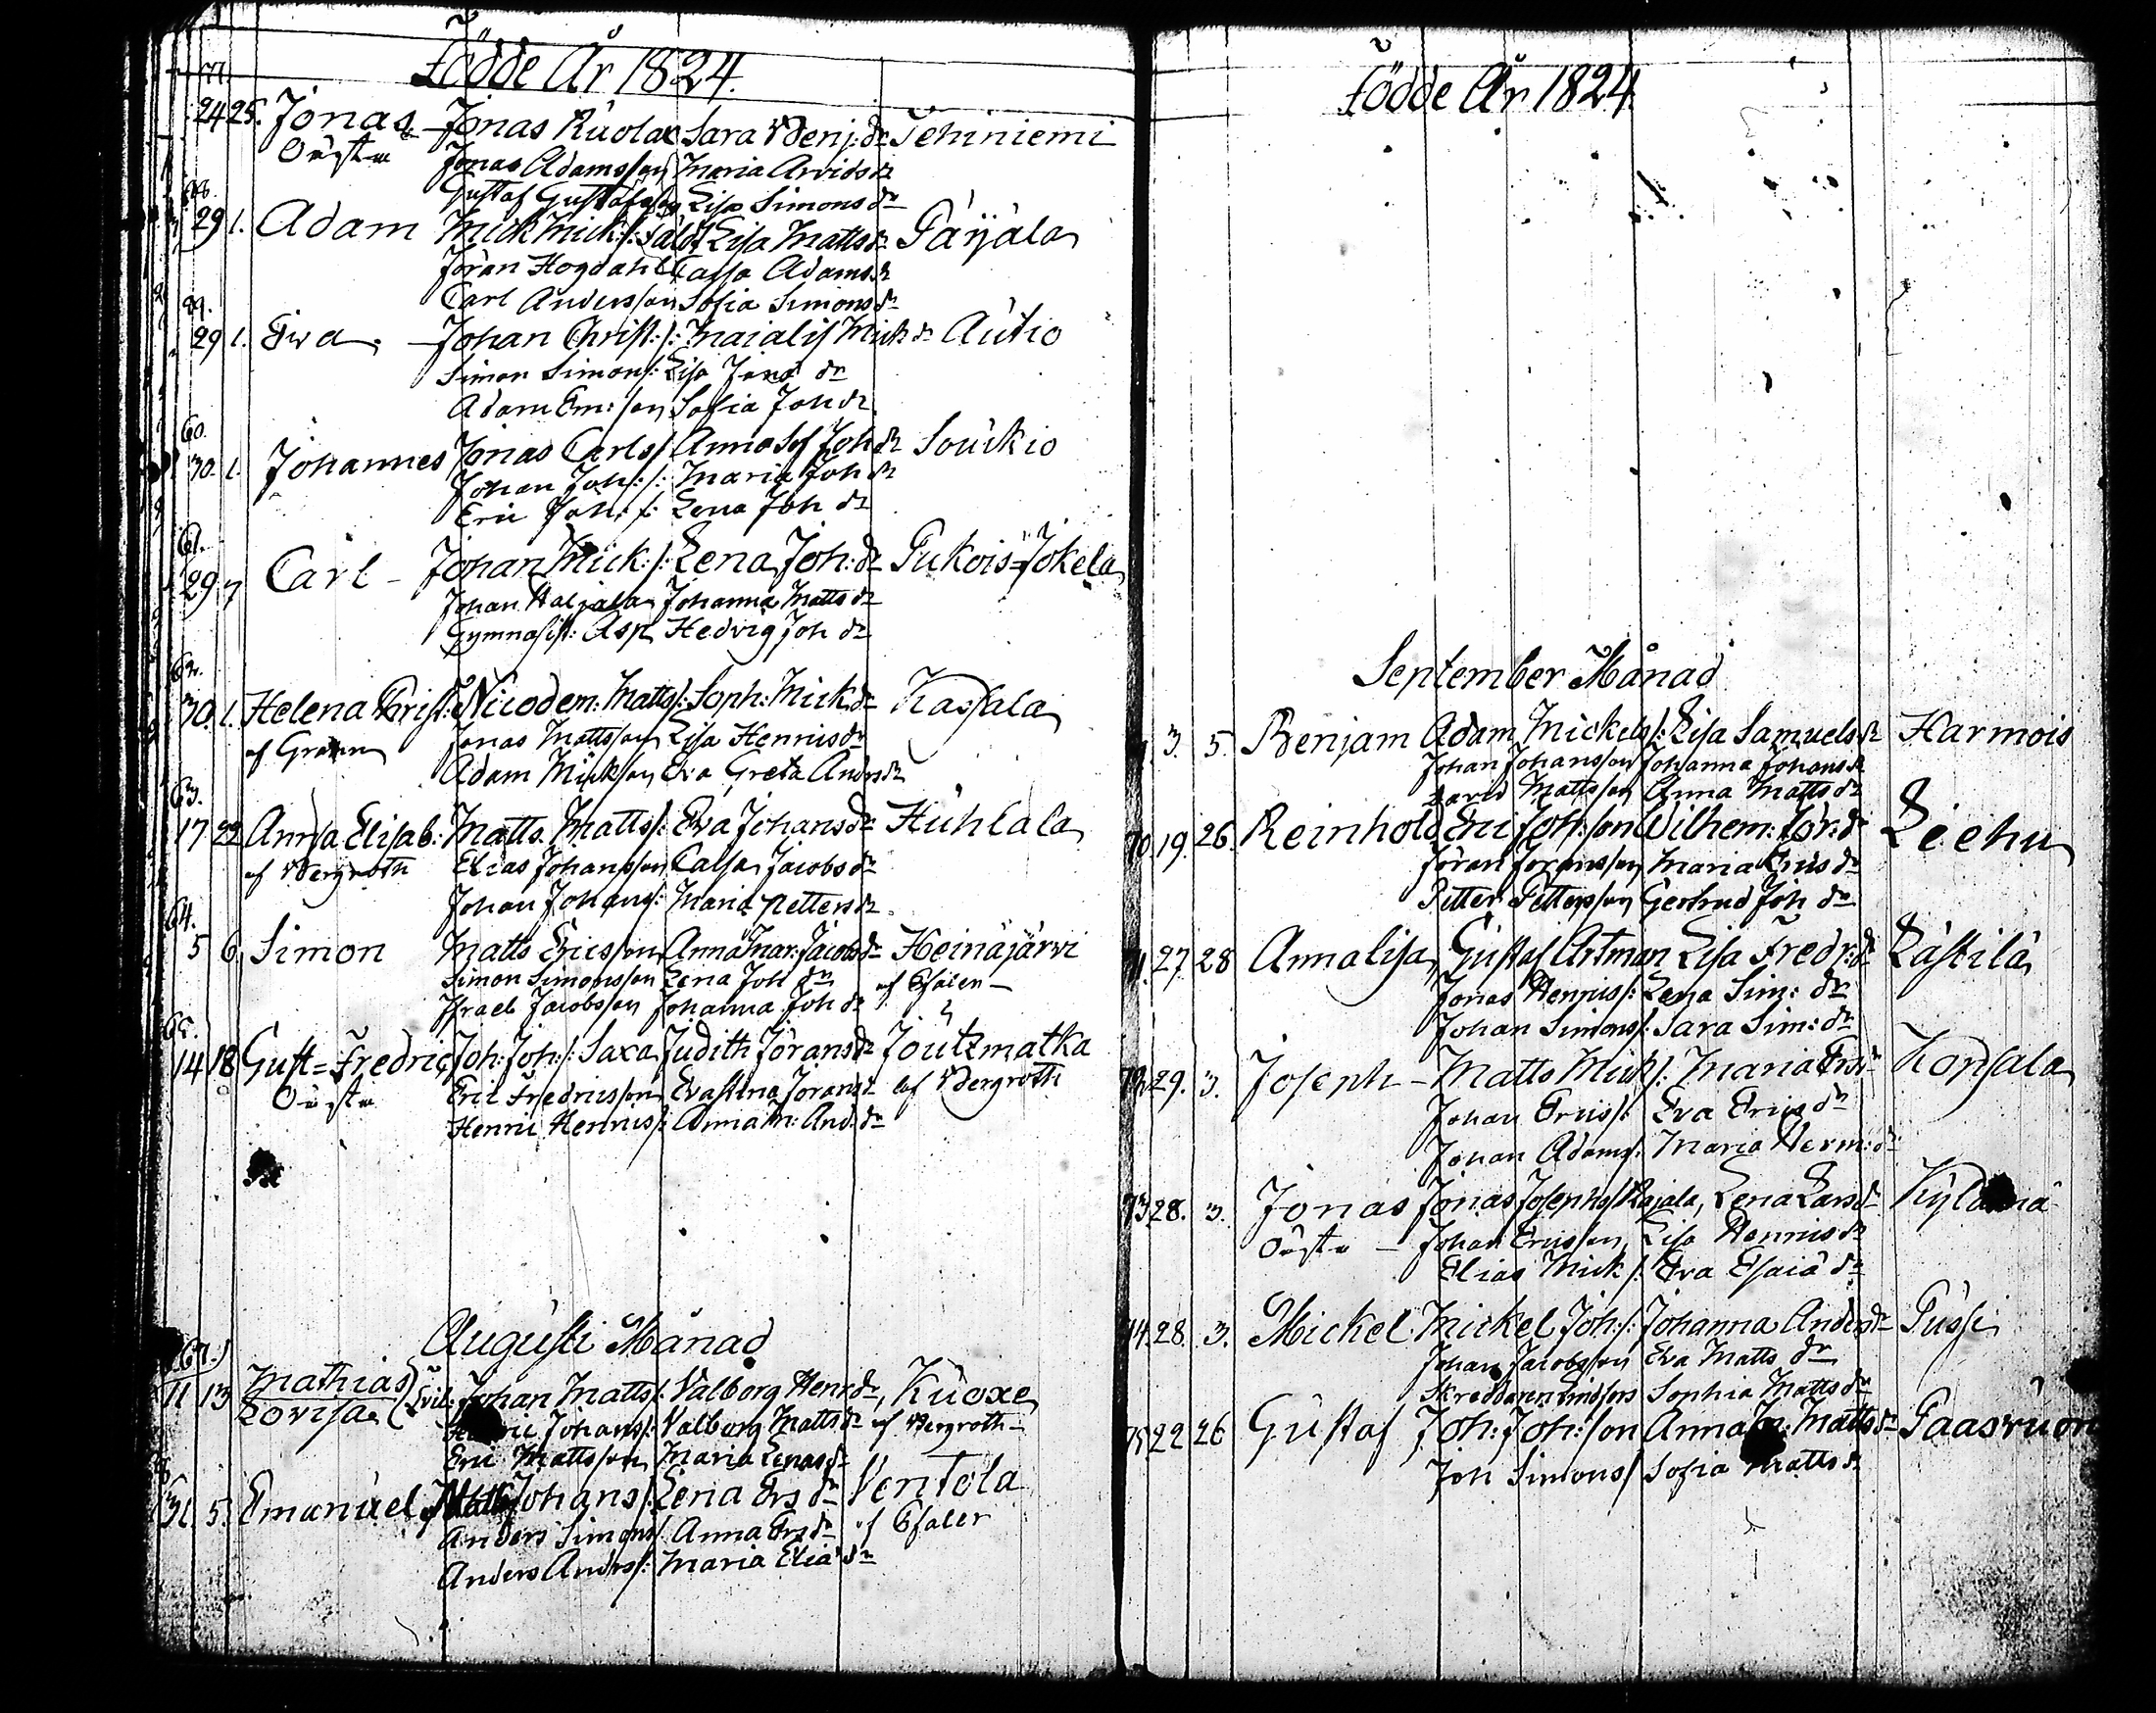 Födde År 1824.
24 25. Jonas Jonas Kuolax Sara Benj: dr Tehiniemi
Oäkta Jonas Adamsson Maria Arvids dr
Gustaf Gustafsson Lisa Simons dr
29 1. Adam Mick Mick/: Lisa Matts dr Pärjälä
Jöran Hogdahl Cajsa Adams dr
Carl Andersson Sofia Simons dr
59.
29 1. Eva Johan Christ:/: Majalis Mick dr Autio
Simon Simons/: Lisa Jona dr
Adam Em:son Sofia Joh dr
60.
30. 1. Johannes Jonas Carls/ Anna Sof Joh dr Souckio
Johan Joh:/: Maria Joh dr
Eric Joh:/: Lena Joh dr
61.
29. 7 Carl Johan Mick:/: Lena Joh: dr Pukois=Jokela
Johan Haljala Johanna Matts dr
Gymnasist: Asp Hedvig Joh dr
62.
30. 1. Helena Christ: Nicodem: Matts/: Soph: Mick dr Kassala
af Jonas Mattsson Lisa Henrics dr
Adam Mickson Eva Greta Anders dr
63.
17 22 Anna Elisab: Matts Matts/: Eva Johans dr Huhlala
af Bergroth Elias Johansson Cajsa Jacobs dr
Johan Johans/: Maria Petters dr
64.
5 6 Simon Matts Ericsson Anna Mar: Jacobs dr Heinäjärvi
Simon Simonsson Lena Joh dr af Esalen
Israel Jacobsson Johanna Joh dr
65.
14 18 Gust=Fredric Joh: Joh:/: Saxa Judith Jörans dr Joutzmatka
Oäkta Eric Fredricsson Evastina Jörans dr af Bergroth
Henric Henrics/: Anna M: And: dr
Augusti Månad
67.
11 13 Mathias Johan Matts/: Valborg Henr dr, Kuoxe
Lovisa Johans/: Valborg Matts dr af Bergroth
Eric Mattsson Maria dr
31. 5. Emanuel Johans/: Lena Ers dr Ventola
Anders Simons/: Anna Ers dr af Esaler
Anders Anders/: Maria Elia dr
Födde År 1824
September Månad
3. 5. Benjam Adam Mickels/: Lisa Samuels dr Harmois
Johan Johansson Johanna Johans dr
David Mattsson Anna Matts dr
70. 19. 26. Reinhold Eric Joh:son Wilhem: Jör: dr Liehu
Jöran Jöransson Maria Erics dr
Petter Pettersson Gertrud Joh dr
71. 27. 28 Annalisa Gustaf Artman Lisa Fredr: dr Lästilä
Jonas Henrics/: Lena Sim: dr
Johan Simons/: Sara Sim: dr
72. 29. 3. Joseph Matts Mick/: Maria Ers dr Korsala
Johan Erics/: Eva Erics dr
Johan Adams/: Maria Herm: dr
73 28. 3. Jonas Jonas Josephs/ Rajala, Lena Lars dr
Oäkta Johan Ericsson, Lisa Henrics dr
Elias Mick/: Eva Esaiä dr
74. 28. 3. Mickel Mickel Joh:/: Johanna Anders dr Pussi
Johan Jacobsson Eva Matts dr
Skreddaren Lindfors Sophia Matts dr
75 22 26 Gustaf Joh: Joh:son Anna M: Matts dr Paasvuori
Joh Simons/ Sofia Matts dr